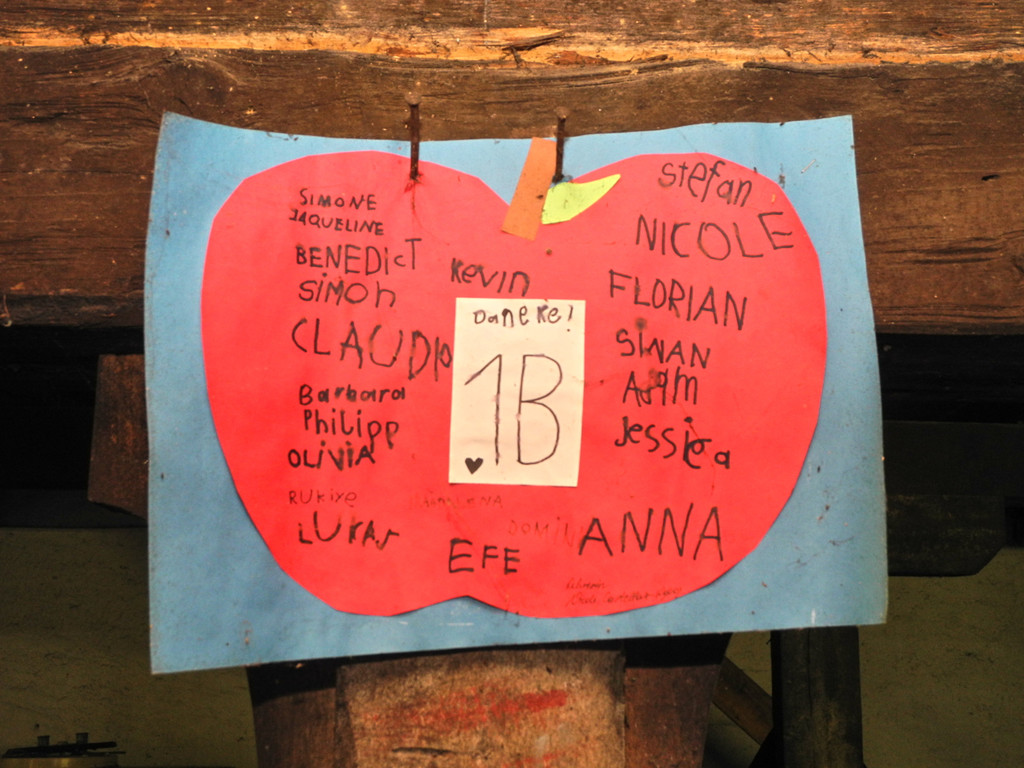 SIMONE
JAQUELINE
BENEDICT
SIMON
CLAUDIO
Barbara
Philipp
OLIVIA
RUKIYE
LUKAS
KEVIN
DANEKE!
1B
MAGDALENA
DOMINI
EFE
Stefan
NICOLE
FLORIAN
SINAN
Adam
Jessica
ANNA